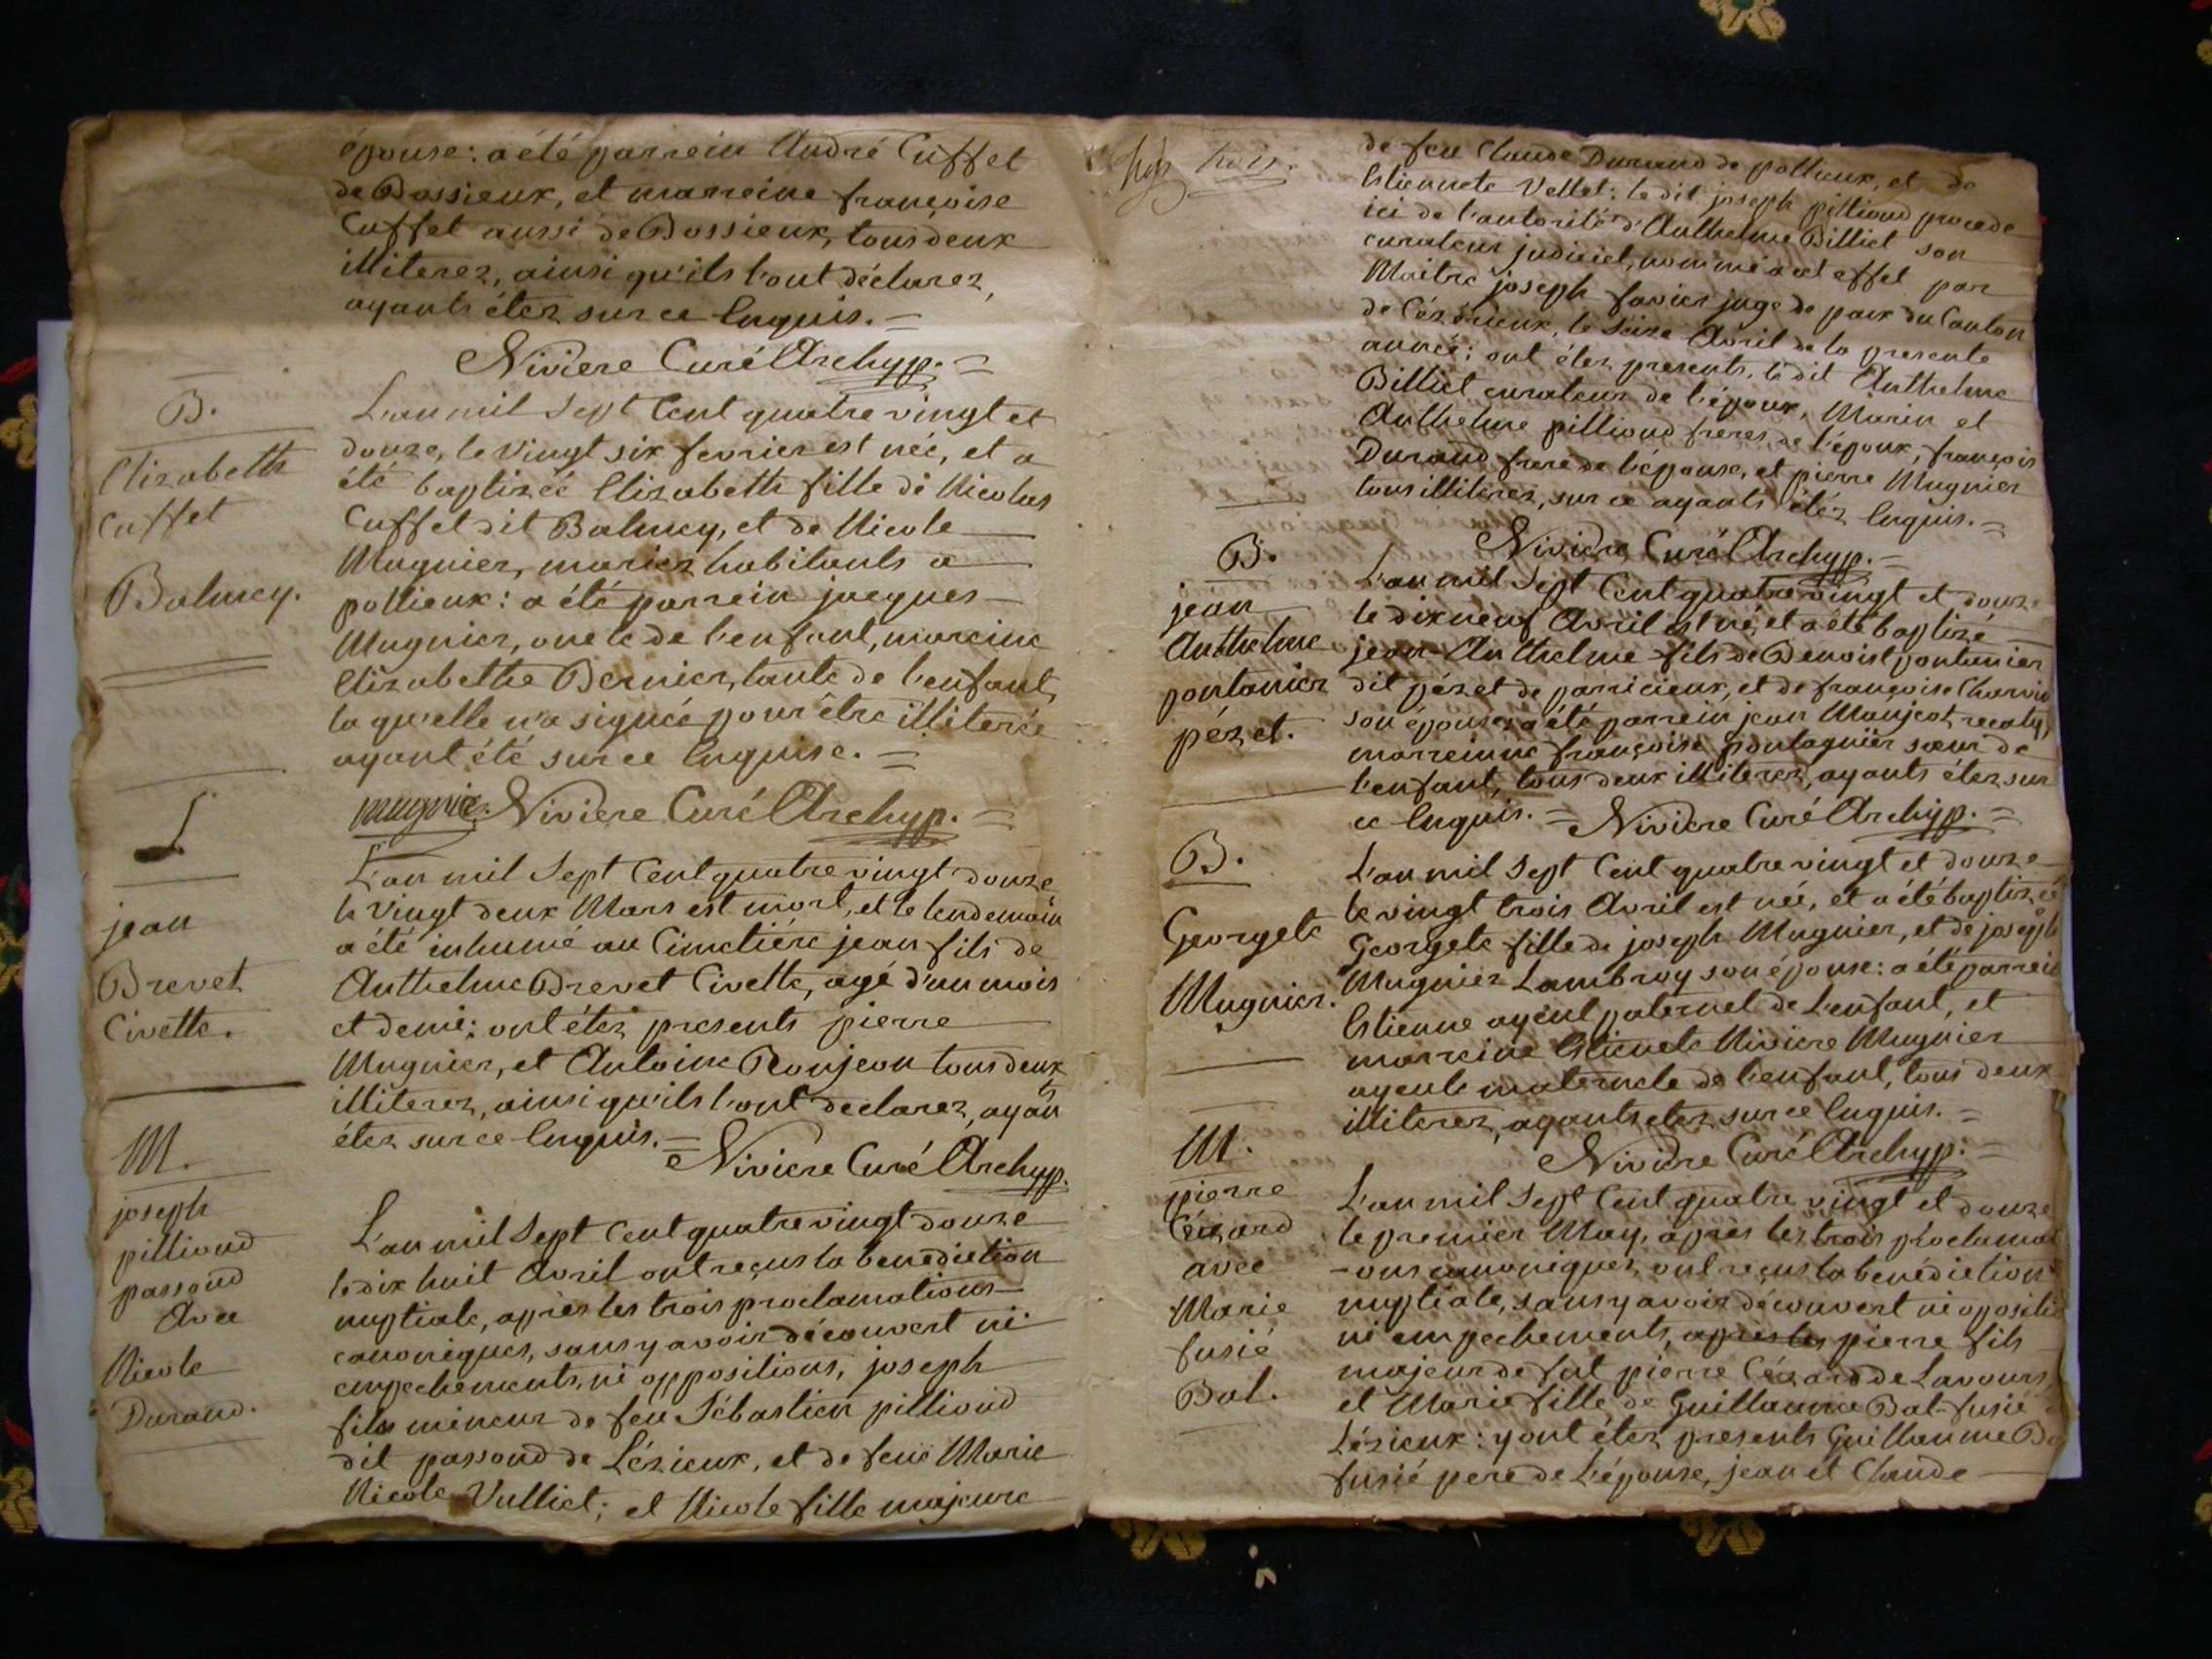 épouse: a été parrein André Cuffet
de Bossieux, et marreine françoise
Cuffet aussi de Bossieux, tous deux
illiterez, ainsi qu'ils l'ont déclarez,
ayants étez sur ce Enquis. =
Niviere Curé Archyp. =
B.
Elizabeth
Cuffet
Balmey.
L'an mil Sept Cent quatre vingt et
douze, le vingt six fevrier est née, et a
été baptizée Elizabeth fille de Nicolas
Cuffet dit Balmey, et de Nicole
Mugnier, mariez habitants a
pollieux: a été parrein jacques
Mugnier, oncle de l'enfant, mareine
Elizabethe Bernier, tante de l'enfant,
la qu'elle n'a signée pour être illiterée
ayant été sur ce Enquise. =
mugnier. Niviere Curé Archyp. =
S
jean
Brevet
Civette.
L'an mil Sept Cent quatre vingt douze
le vingt deux Mars est mort, et le lendemain
a été inhumé au Cimetiére jean fils de
Anthelme Brevet Civette, agé d'un mois
et demi: ont étez presents pierre
Mugnier, et Antoine Ronjeon tous deux
illiterez, ainsi qu'ils l'ont declarez, ayants
étez sur ce Enquis. =
Niviere Curé Archyp.
M.
joseph
pilliond
passond
Avec
Nicole
Durand.
L'an mil Sept Cent quatre vingt douze
le dix huit Avril ont reçus la benediction
nuptiale, après les trois proclamations
canoniques, sans y avoir découvert ni
empechements, ni oppositions, joseph
fils mineur de feu Sébastien pilliond
dit passond de Lézieux, et de feue Marie
Nicole Vulliet; et Nicole fille majeure
trois.
de feu Claude Durand de pollieux, et de
Estiennete Vellet: le dit joseph pilliond procede
ici de l'autorité d'Anthelme Billiet son
curateur judiciel, nommé a cet effet par
Maitre joseph favier juge de paix du Canton
de Cézérieux, le Seize Avril de la presente
année: ont étez presents, le dit Anthelme
Billiet curateur de l'époux, Marin et
Anthelme pilliond freres de l'époux, françois
Durand frere de l'épouse, et pierre Mugnier
tous illiterez, sur ce ayants étéz Enquis. =
Niviere Curé Archyp. =
B.
jean
Anthelme
pontanier
pézet.
L'an mil Sept Cent quatre vingt et douze
le dixneuf Avril est né, et a été baptizé
jean-Anthelme fils de Benoist pontanier
dit pézet de parricieux, et de françoise Charvin
son épouse: a été parrein jean Maujeot
marreinne françoise pontagnier sœur de
l'enfant, tous deux illiterez, ayants étez sur
ce Enquis. = Niviere Curé Archyp. =
B.
Georgete
Mugnier.
L'an mil Sept Cent quatre vingt et douze
le vingt trois Avril est née, et a été baptizée
Georgete fille de joseph Mugnier, et de josephe
Mugnier Lambroy son épouse: a été parrein
Estienne ayeul paternel de l'enfant, et
marreine Estienete Niviere Mugnier
ayeule maternele de l'enfant, tous deux
illiterez, ayants etez sur ce Enquis. =
Niviere Curé Archyp. =
M.
pierre
Cézard
avec
Marie
fusié
Bal.
L'an mil Sept Cent quatre vingt et douze
le premier May, après les trois proclamati
-ons canoniques, ont reçus la benédiction
nuptiale, sans y avoir découvert ni opositio
ni empechements, après les pierre fils
majeur de fut pierre Cézard de Lavours,
et Marie fille de Guillaume Bal-fusié
Lézieux: y ont étez presents Guillaume Ba
fusié pere de L'épouse, jean et Claude